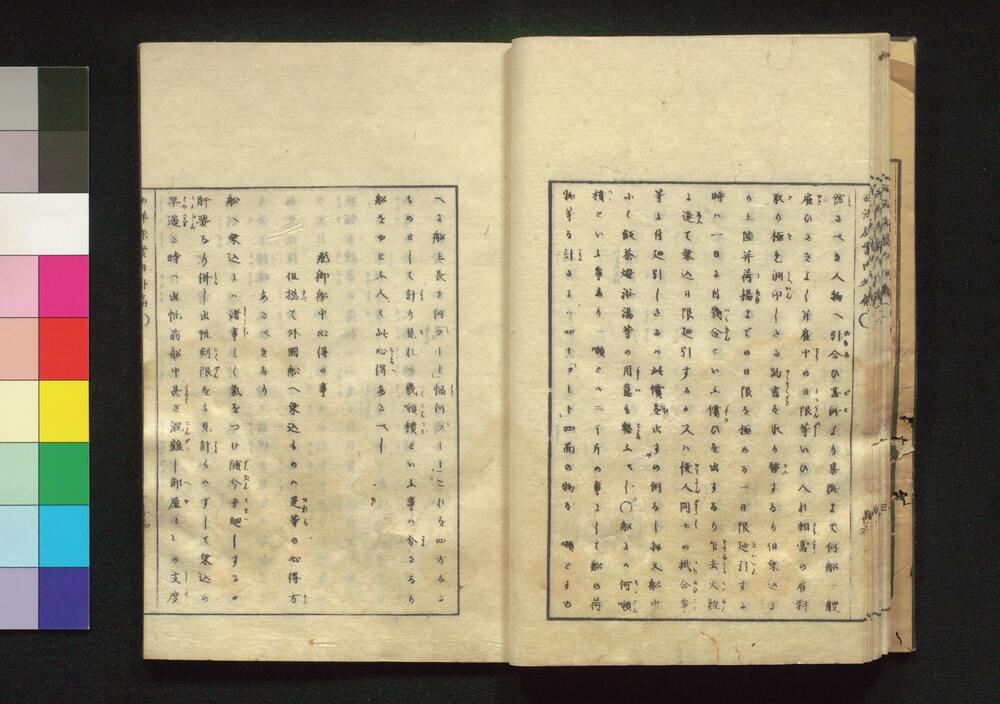 然るべき人物へ引合ひ某所より某処まて何船一艘
雇ひたきよし并雇中の日限等いひ入れ相當の雇料
取り極を調印したる約書を取り替すなり但乗込よ
り上陸并荷揚まての日限を極める一日限延引する
時ハ一日に付幾金といふ償ひを出すなり乍去火難
に逢て乗込日限延引するか又ハ役人同士の掛合事
等に付延引したるハ此償を出すの例なし扨又船中
にて飯茶煙浴湯等の用意も整ふべし〇船にハ何噸
積といふ事あり一噸とハ二千斤の事にして船の荷
物等を計るにハ四十フート四面の物を一噸とする也
へに船上長さ何フート幅何フートこれを四方なる
ものとして計り見れハ幾噸積といふ事の分るなり
船をやとふ人ハ此心得あるべし
飛脚船中心得の事
但捴て外國船へ乗込ものハ是等の心得方
あるべきなり
船へ乗込にハ諸事よく氣をつけ随分手廻しするか
肝要なり併し出帆刻限をも見計らハずして乗込の
早過る時ハ出帆前船中甚だ混雑し部屋との支度